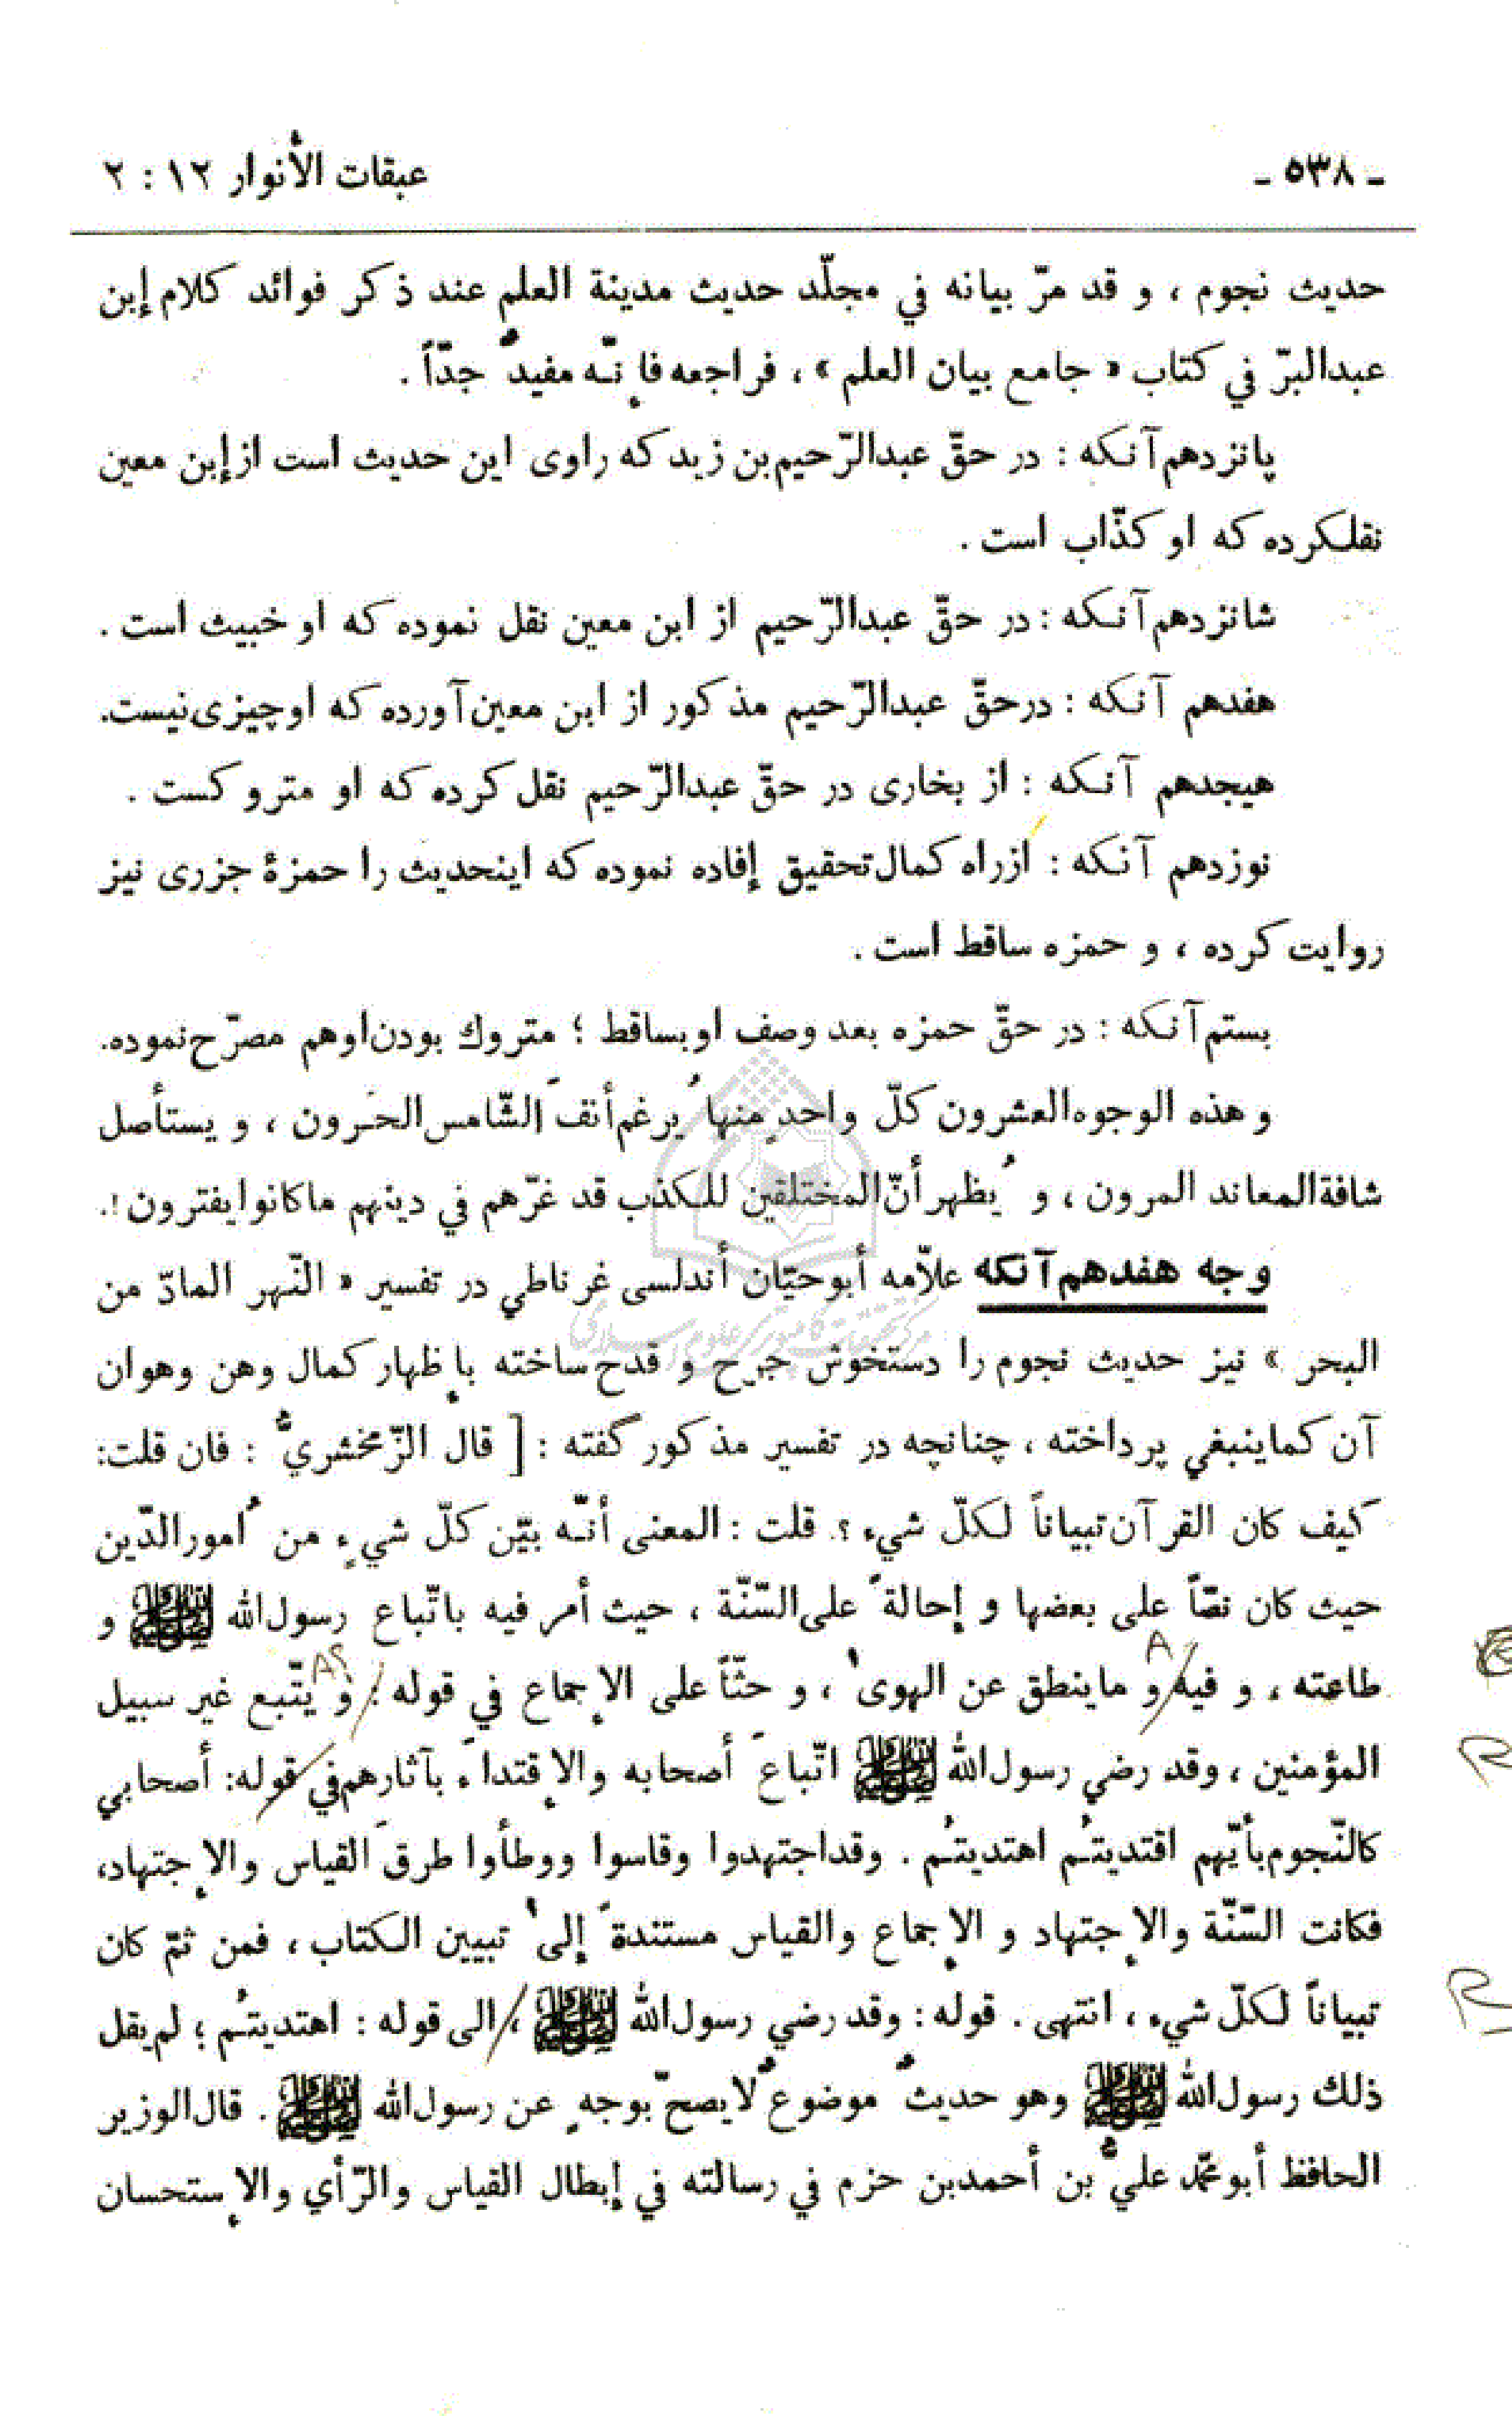 - ٥٣٨ -
عبقات الأنوار ١٢ : ٢
حديث نجوم ، و قد مرّ بيانه في مجلّد حديث مدينة العلم عند ذكر فوائد كلام إبن
عبدالبرّ في كتاب « جامع بيان العلم » ، فراجعه فإنّه مفيدٌ جدّاً .
پانزدهم آنكه : در حقّ عبدالرّحيم بن زيد كه راوى اين حديث است از إبن معين
نقلكرده كه او كذّاب است .
شانزدهم آنكه : در حقّ عبدالرّحيم از ابن معين نقل نموده كه او خبيث است .
هفدهم آنكه : درحقّ عبدالرّحيم مذكور از ابن معين آورده كه او چيزى نيست.
هيجدهم آنكه : از بخارى در حقّ عبدالرّحيم نقل كرده كه او متروكست .
نوزدهم آنكه : ازراه كمال تحقيق إفاده نموده كه اينحديث را حمزهٔ جزرى نيز
روايت كرده ، و حمزه ساقط است .
بستم آنكه : در حقّ حمزه بعد وصف او بساقط ؛ متروك بودن او هم مصرّح نموده.
و هذه الوجوه العشرون كلّ واحدٍ منها يُرغم أنفَ الشّامس الحَرون ، و يستأصل
شافة المعاند المرون ، و يُظهر أنّ المختلقين للكذب قد غرّهم في دينهم ما كانوا يفترون !.
وجه هفدهم آنكه علاّمه أبوحيّان أندلسى غرناطي در تفسير « النّهر المادّ من
البحر » نيز حديث نجوم را دستخوش جرح و قدح ساخته بإظهار كمال وهن وهوان
آن كما ينبغي پرداخته ، چنانچه در تفسير مذكور گفته : [ قال الزّمخشريُّ : فان قلت:
كيف كان القرآن تبياناً لكلّ شيء ؟. قلت : المعنى أنّه بيّن كلّ شيءٍ من اُمور الدّين
حيث كان نصّاً على بعضها و إحالةً على السّنّة ، حيث أمر فيه باتّباع رسول الله ﷺ و
طاعته ، و فيه و ما ينطق عن الهوى ، و حثّاً على الإجماع في قوله : و يتّبع غير سبيل
المؤمنين ، وقد رضي رسول الله ﷺ اتّباعَ أصحابه والإقتداءَ بآثارهم في قوله: أصحابي
كالنّجوم بأيّهم اقتديتُم اهتديتُم . وقد اجتهدوا وقاسوا ووطأوا طرقَ القياس والإجتهاد،
فكانت السّنّة والإجتهاد و الإجماع والقياس مستندةً إلى تبيين الكتاب ، فمن ثمّ كان
تبياناً لكلّ شيء ، انتهى . قوله : وقد رضي رسول الله ﷺ ، الى قوله : اهتديتُم ؛ لم يقل
ذلك رسول الله ﷺ وهو حديثٌ موضوعٌ لا يصحّ بوجهٍ عن رسول الله ﷺ . قال الوزير
الحافظ أبو محمّد عليُّ بن أحمد بن حزم في رسالته في إبطال القياس والرّأي والإستحسان